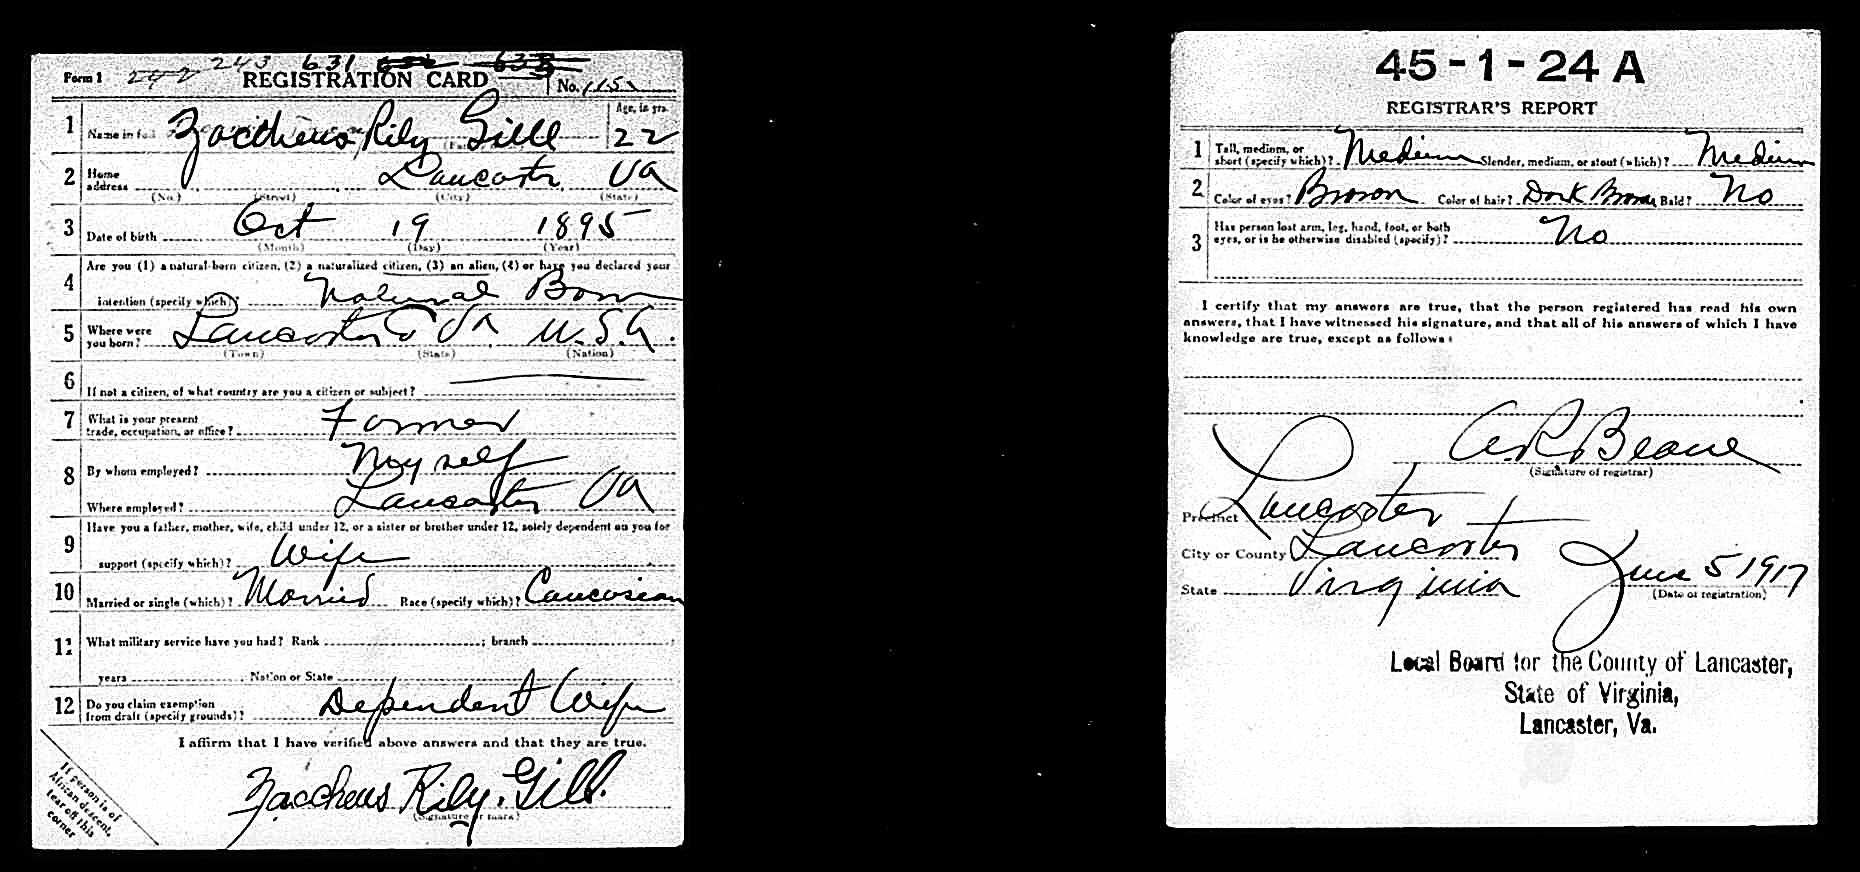 Form 1 242 243 631 REGISTRATION CARD No. 115
1 Name in full Zaccheus Rily Gill Age, in yrs. 22
2 Home address Lancaster Va
(No.) (Street) (City) (State)
3 Date of birth Oct 19 1895
(Month) (Day) (Year)
4 Are you (1) a natural-born citizen, (2) a naturalized citizen, (3) an alien, (4) or have you declared your
intention (specify which)? Natural Born
5 Where were you born? Lancaster Va U.S.A.
(Town) (State) (Nation)
6 If not a citizen, of what country are you a citizen or subject?
7 What is your present trade, occupation, or office? Farmer
8 By whom employed? Myself
Where employed? Lancaster Va
9 Have you a father, mother, wife, child under 12, or a sister or brother under 12, solely dependent on you for
support (specify which)? Wife
10 Married or single (which)? Married Race (specify which)? Caucasian
11 What military service have you had? Rank ; branch ;
years Nation or State
12 Do you claim exemption from draft (specify grounds)? Dependent Wife
I affirm that I have verified above answers and that they are true.
Zaccheus Rily. Gill.
(Signature or mark)
If person is of
African descent,
tear off this
corner
45-1-24 A
REGISTRAR'S REPORT
1 Tall, medium, or short (specify which)? Medium Slender, medium, or stout (which)? Medium
2 Color of eyes? Brown Color of hair? Dark Brown Bald? No
3 Has person lost arm, leg, hand, foot, or both
eyes, or is he otherwise disabled (specify)? No
I certify that my answers are true, that the person registered has read his own
answers, that I have witnessed his signature, and that all of his answers of which I have
knowledge are true, except as follows:
A R Beane
(Signature of registrar)
Precinct Lancaster
City or County Lancaster
State Virginia June 5 1917
(Date of registration)
Local Board for the County of Lancaster,
State of Virginia,
Lancaster, Va.